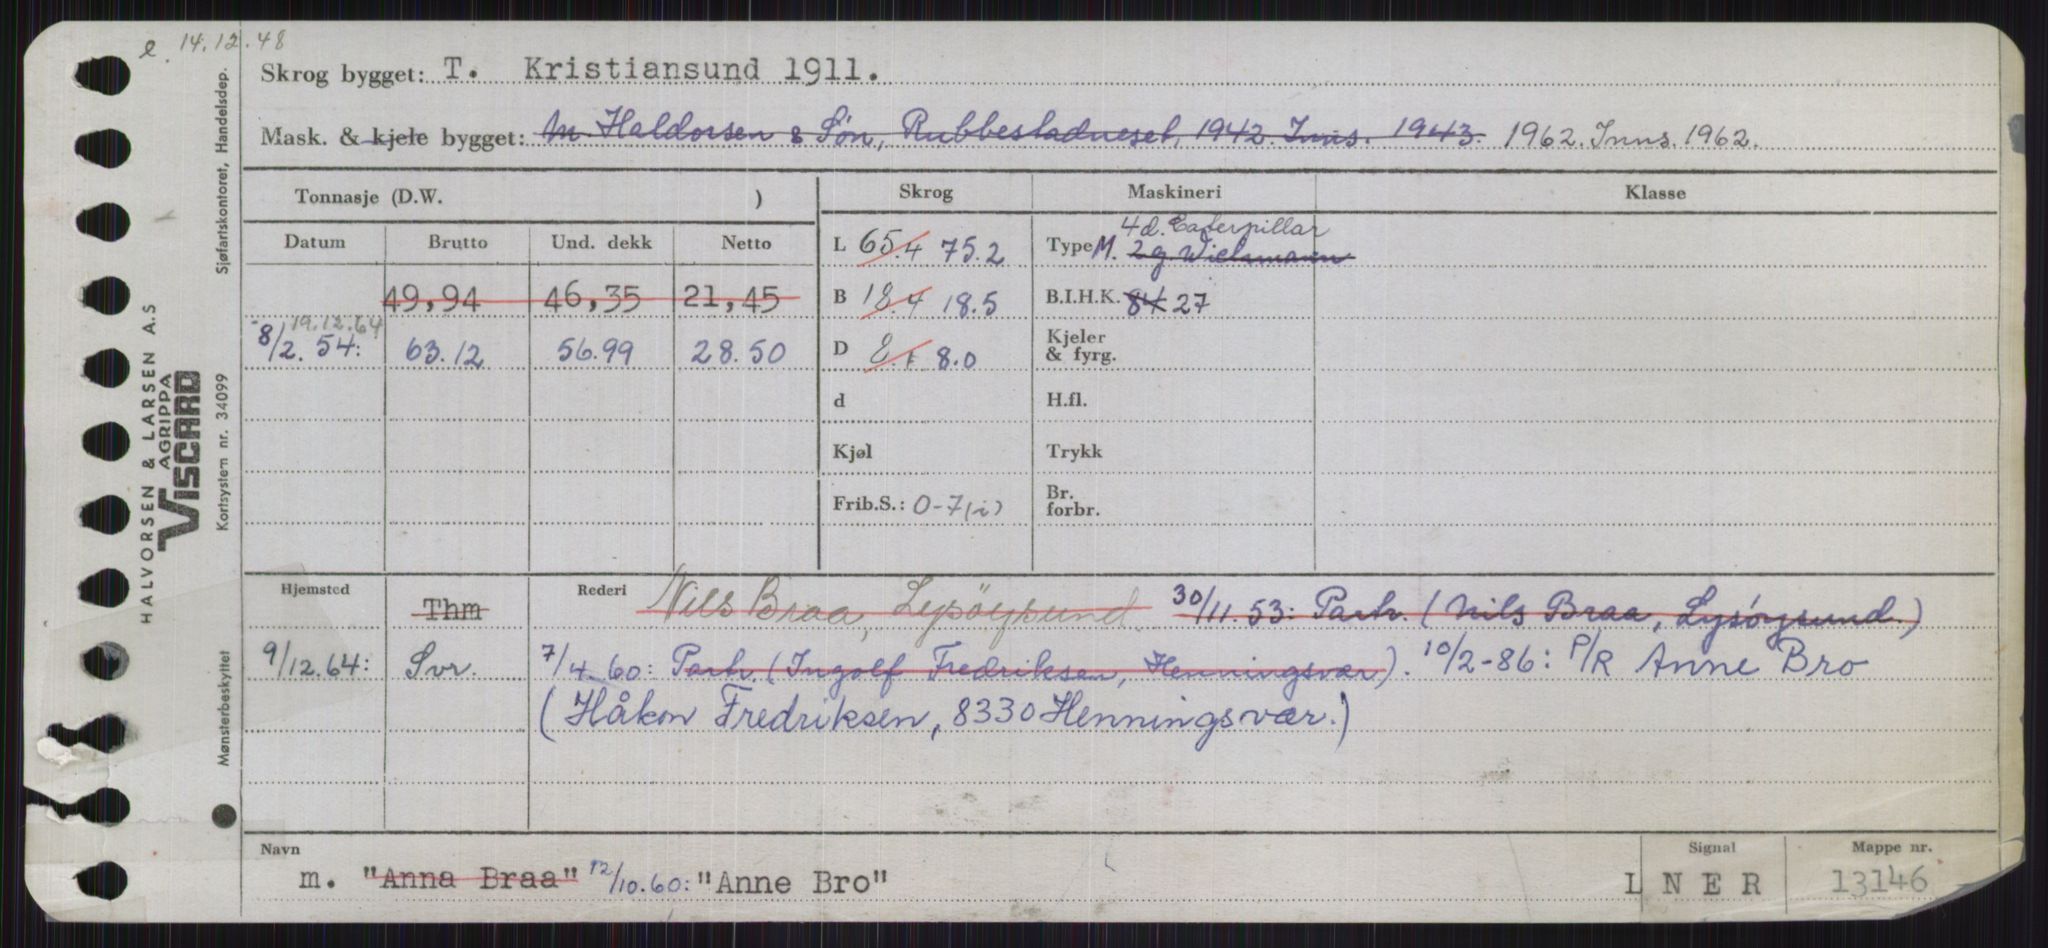 e. 14.12.48
Skrog bygget: T. Kristiansund 1911.
Mask. & kjele bygget: M. Haldorsen & Søn, Rubbestadneset, 1942. Inns. 1943. 1962. Inns. 1962.
Tonnasje (D.W. ) Skrog Maskineri Klasse
Datum Brutto Und. dekk Netto L 65.4 75.2 Type M. 2 g. Wichmann
4 d. Caterpillar
49,94 46,35 21,45 B 18.4 18.5 B.I.H.K. 84 27
19.12.64
8/2. 54: 63.12 56.99 28.50 D 8.0 Kjeler & fyrg.
d H.fl.
Kjøl Trykk
Frib.S.: 0-7(i) Br. forbr.
Hjemsted Thm Rederi Nils Braa, Lysøysund. 30/11.53: Parh. (Nils Braa, Lysøysund.)
9/12.64: Svr. 7/4.60: Parh. (Ingolf Fredriksen, Henningsvær). 10/2-86: P/R Anne Bro
(Håkon Fredriksen, 8330 Henningsvær.)
Navn Signal Mappe nr.
m. "Anna Braa" 12/10.60: "Anne Bro" L N E R 13146
HALVORSEN & LARSEN A.S
AGRIPPA
VISCARD
Sjøfartskontoret, Handelsdep.
Kortsystem nr. 34099
Mønsterbeskyttet